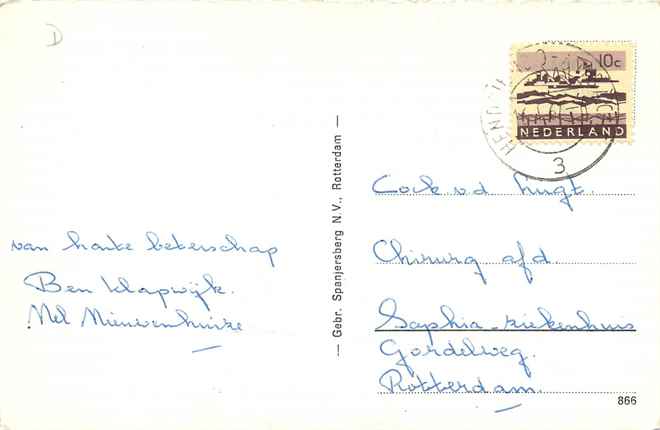 D
van harte beterschap
Ben Klapwijk.
Nel Nieuwenhuize
— Gebr. Spanjersberg N.V., Rotterdam —
10c
NEDERLAND
3
Cock v.d. Lugt.
Chirurg afd.
Saphia-ziekenhuis
Gordelweg.
Rotterdam.
866